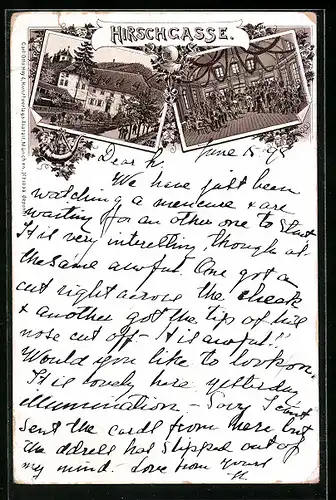 HIRSCHGASSE.
Dear
June 15. 95
We have just been
watching a mensure & are
waiting for an other one to start
It is very interesting, though at
the same awful. One got a
cut right across the cheek
& another got the tip of his
nose cut off - it is awful!!
Would you like to look on.
It is lovely here yesterday
illumination - Sorry I can't
sent the cards from here but
the adress has slipped out of
my mind - Love from yours